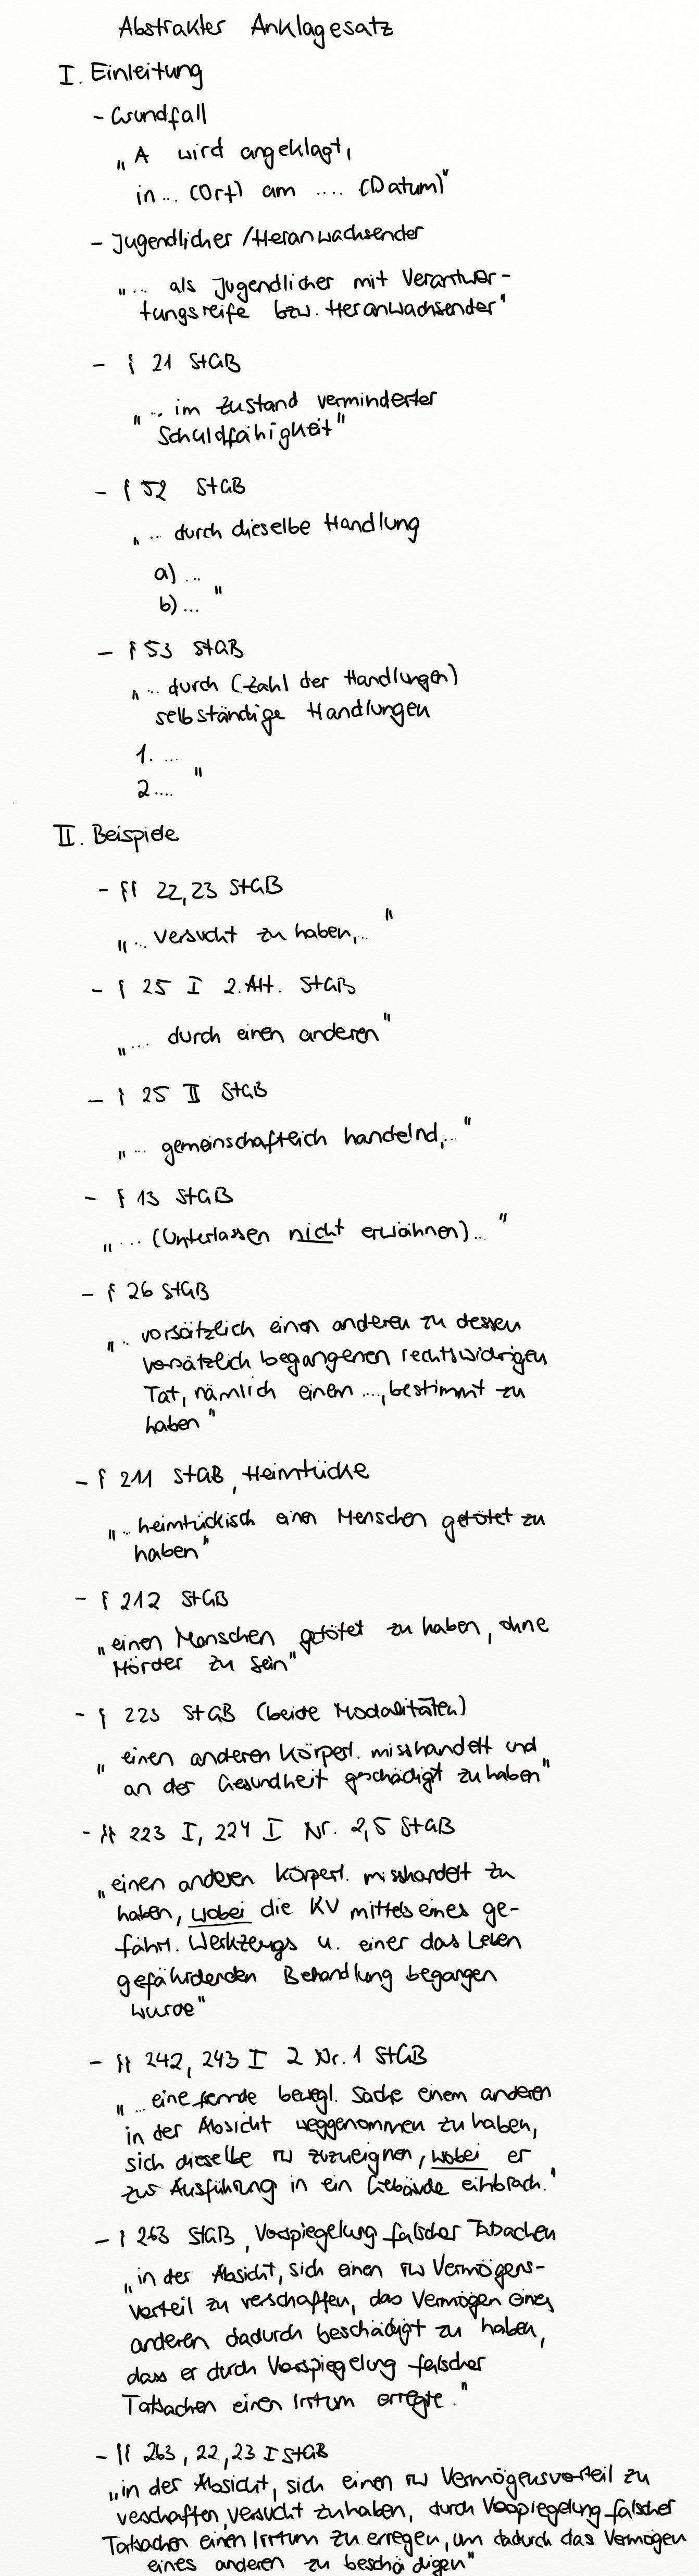 Abstrakter Anklagesatz
I. Einleitung
- Grundfall
„A wird angeklagt,
in... (Ort) am .... (Datum)"
- Jugendlicher / Heranwachsender
„... als Jugendlicher mit Verantwor-
tungsreife bzw. Heranwachsender"
- § 21 StGB
„... im Zustand verminderter
Schuldfähigkeit"
- § 52 StGB
„... durch dieselbe Handlung
a) ...
b) ... "
- § 53 StGB
„... durch (Zahl der Handlungen)
selbständige Handlungen
1. ....
2.... "
II. Beispiele
- §§ 22, 23 StGB
„... versucht zu haben,.. "
- § 25 I 2. Alt. StGB
„.... durch einen anderen"
- § 25 II StGB
„... gemeinschaftlich handelnd,... "
- § 13 StGB
„... (Unterlassen nicht erwähnen).. "
- § 26 StGB
„.. vorsätzlich einen anderen zu dessen
vorsätzlich begangenen rechtswidrigen
Tat, nämlich einem ..., bestimmt zu
haben"
- § 211 StGB, Heimtücke
„.. heimtückisch einen Menschen getötet zu
haben"
- § 212 StGB
„einen Menschen getötet zu haben, ohne
Mörder zu sein"
- § 223 StGB (beide Modalitäten)
„ einen anderen körperl. misshandelt und
an der Gesundheit geschädigt zu haben"
- §§ 223 I, 224 I Nr. 2,5 StGB
„einen anderen körperl. misshandelt zu
haben, wobei die KV mittels eines ge-
fährl. Werkzeugs u. einer das Leben
gefährdenden Behandlung begangen
wurde"
- §§ 242, 243 I 2 Nr. 1 StGB
„... eine fremde bewegl. Sache einem anderen
in der Absicht weggenommen zu haben,
sich dieselbe rw zuzueignen, wobei er
zur Ausführung in ein Gebäude einbrach."
- § 263 StGB, Vorspiegelung falscher Tatsachen
„in der Absicht, sich einen rw Vermögens-
vorteil zu verschaffen, das Vermögen eines
anderen dadurch beschädigt zu haben,
dass er durch Vorspiegelung falscher
Tatsachen einen Irrtum erregte."
- §§ 263, 22, 23 I StGB
„in der Absicht, sich einen rw Vermögensvorteil zu
veschaffen, versucht zu haben, durch Vorspiegelung falscher
Tatsachen einen Irrtum zu erregen, um dadurch das Vermögen
eines anderen zu beschädigen"